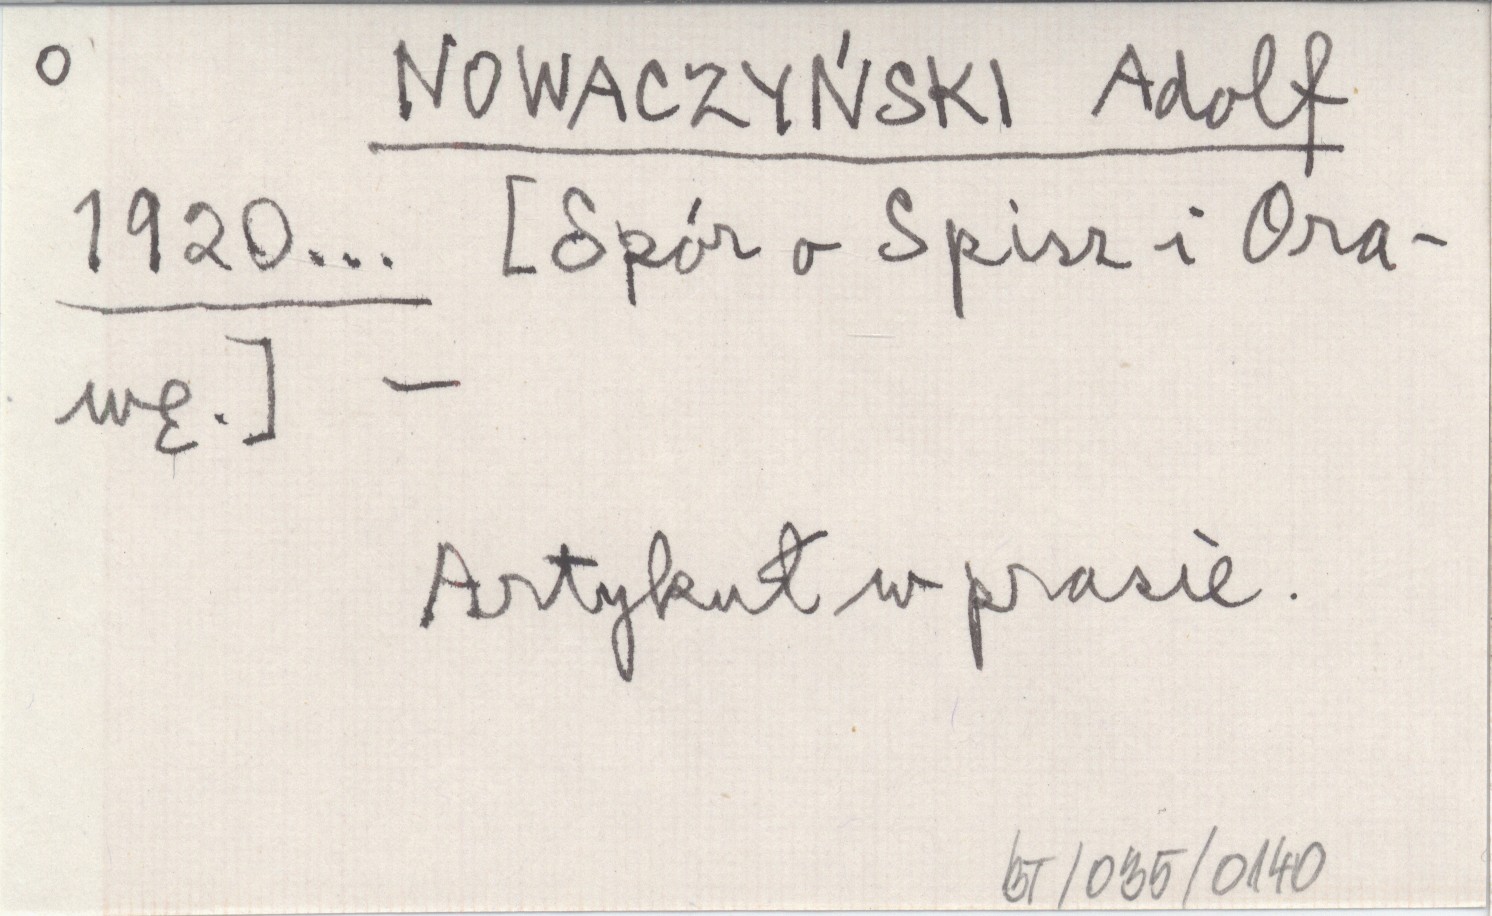 o NOWACZYŃSKI Adolf
1920... [Spór o Spisz i Ora-
wę.] —
Artykuł w prasie.
BT/035/0140